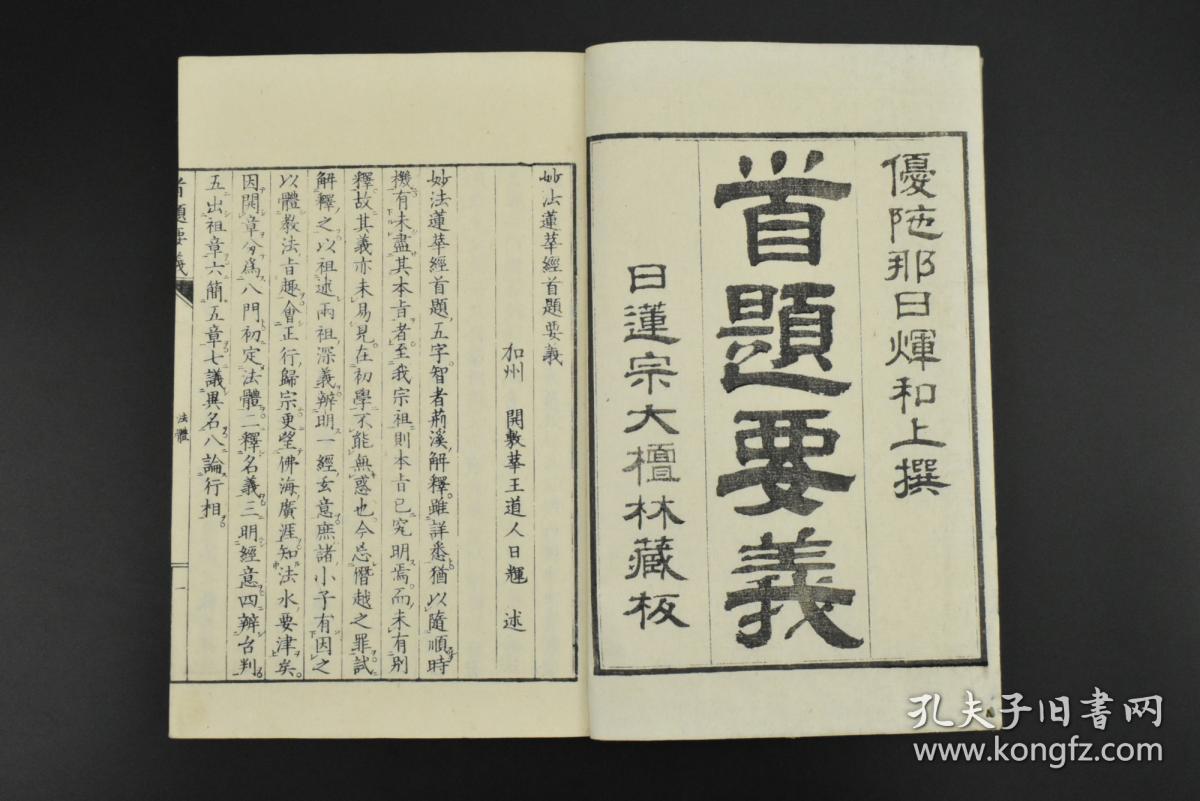 優陁那日煇和上撰
首題要義
日蓮宗大檀林藏板
妙法蓮華經首題要義
加州　開敷華王道人日輝　述
妙法蓮華經首題五字智者荊溪解釋雖詳悉猶以隨順時
機有未盡其本旨者至我宗祖則本旨已究明焉而未有別
釋故其義亦未易見在初學不能無惑也今忘僭越之罪試
解釋之以祖述兩祖深義辨明一經玄意庶諸小子有因之
以體教法旨趣會正行歸宗更望佛海廣涯知法水要津矣
因開章分爲八門初定法體二釋名義三明經意四辨台判
五出祖章六簡五章七議異名八論行相
首題要義
法體
一
孔夫子旧书网
www.kongfz.com